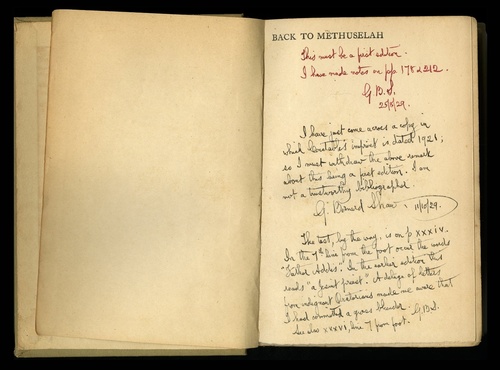 BACK TO METHUSELAH
This must be a first edition.
I have made notes on pp. 178 & 212.
G.B.S.
25/8/29.
I have just come across a copy in
which Constable's imprint is dated 1921;
so I must withdraw the above remark
about this being a first edition. I am
not a trustworthy bibliographer.
G. Bernard Shaw 11/10/29.
The test, by the way, is on p xxxiv.
In the 7th line from the foot occur the words
"Father Addis". In the earlier edition this
reads "a Jesuit priest". A deluge of letters
from indignant Oratorians made me aware that
I had committed a gross blunder. G.B.S.
See also xxxvi, line 7 from foot.